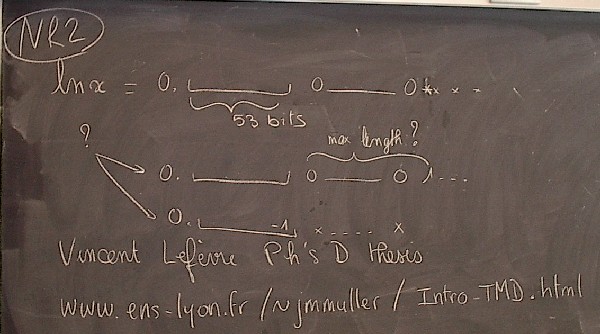 NR2
lnx = 0. 0 0 * x x x
53 bits
? max length?
0. 0 0 1...
0. -1 x .... x
Vincent Lefèvre Ph's D thesis
www.ens-lyon.fr/~jmmuller/Intro-TMD.html